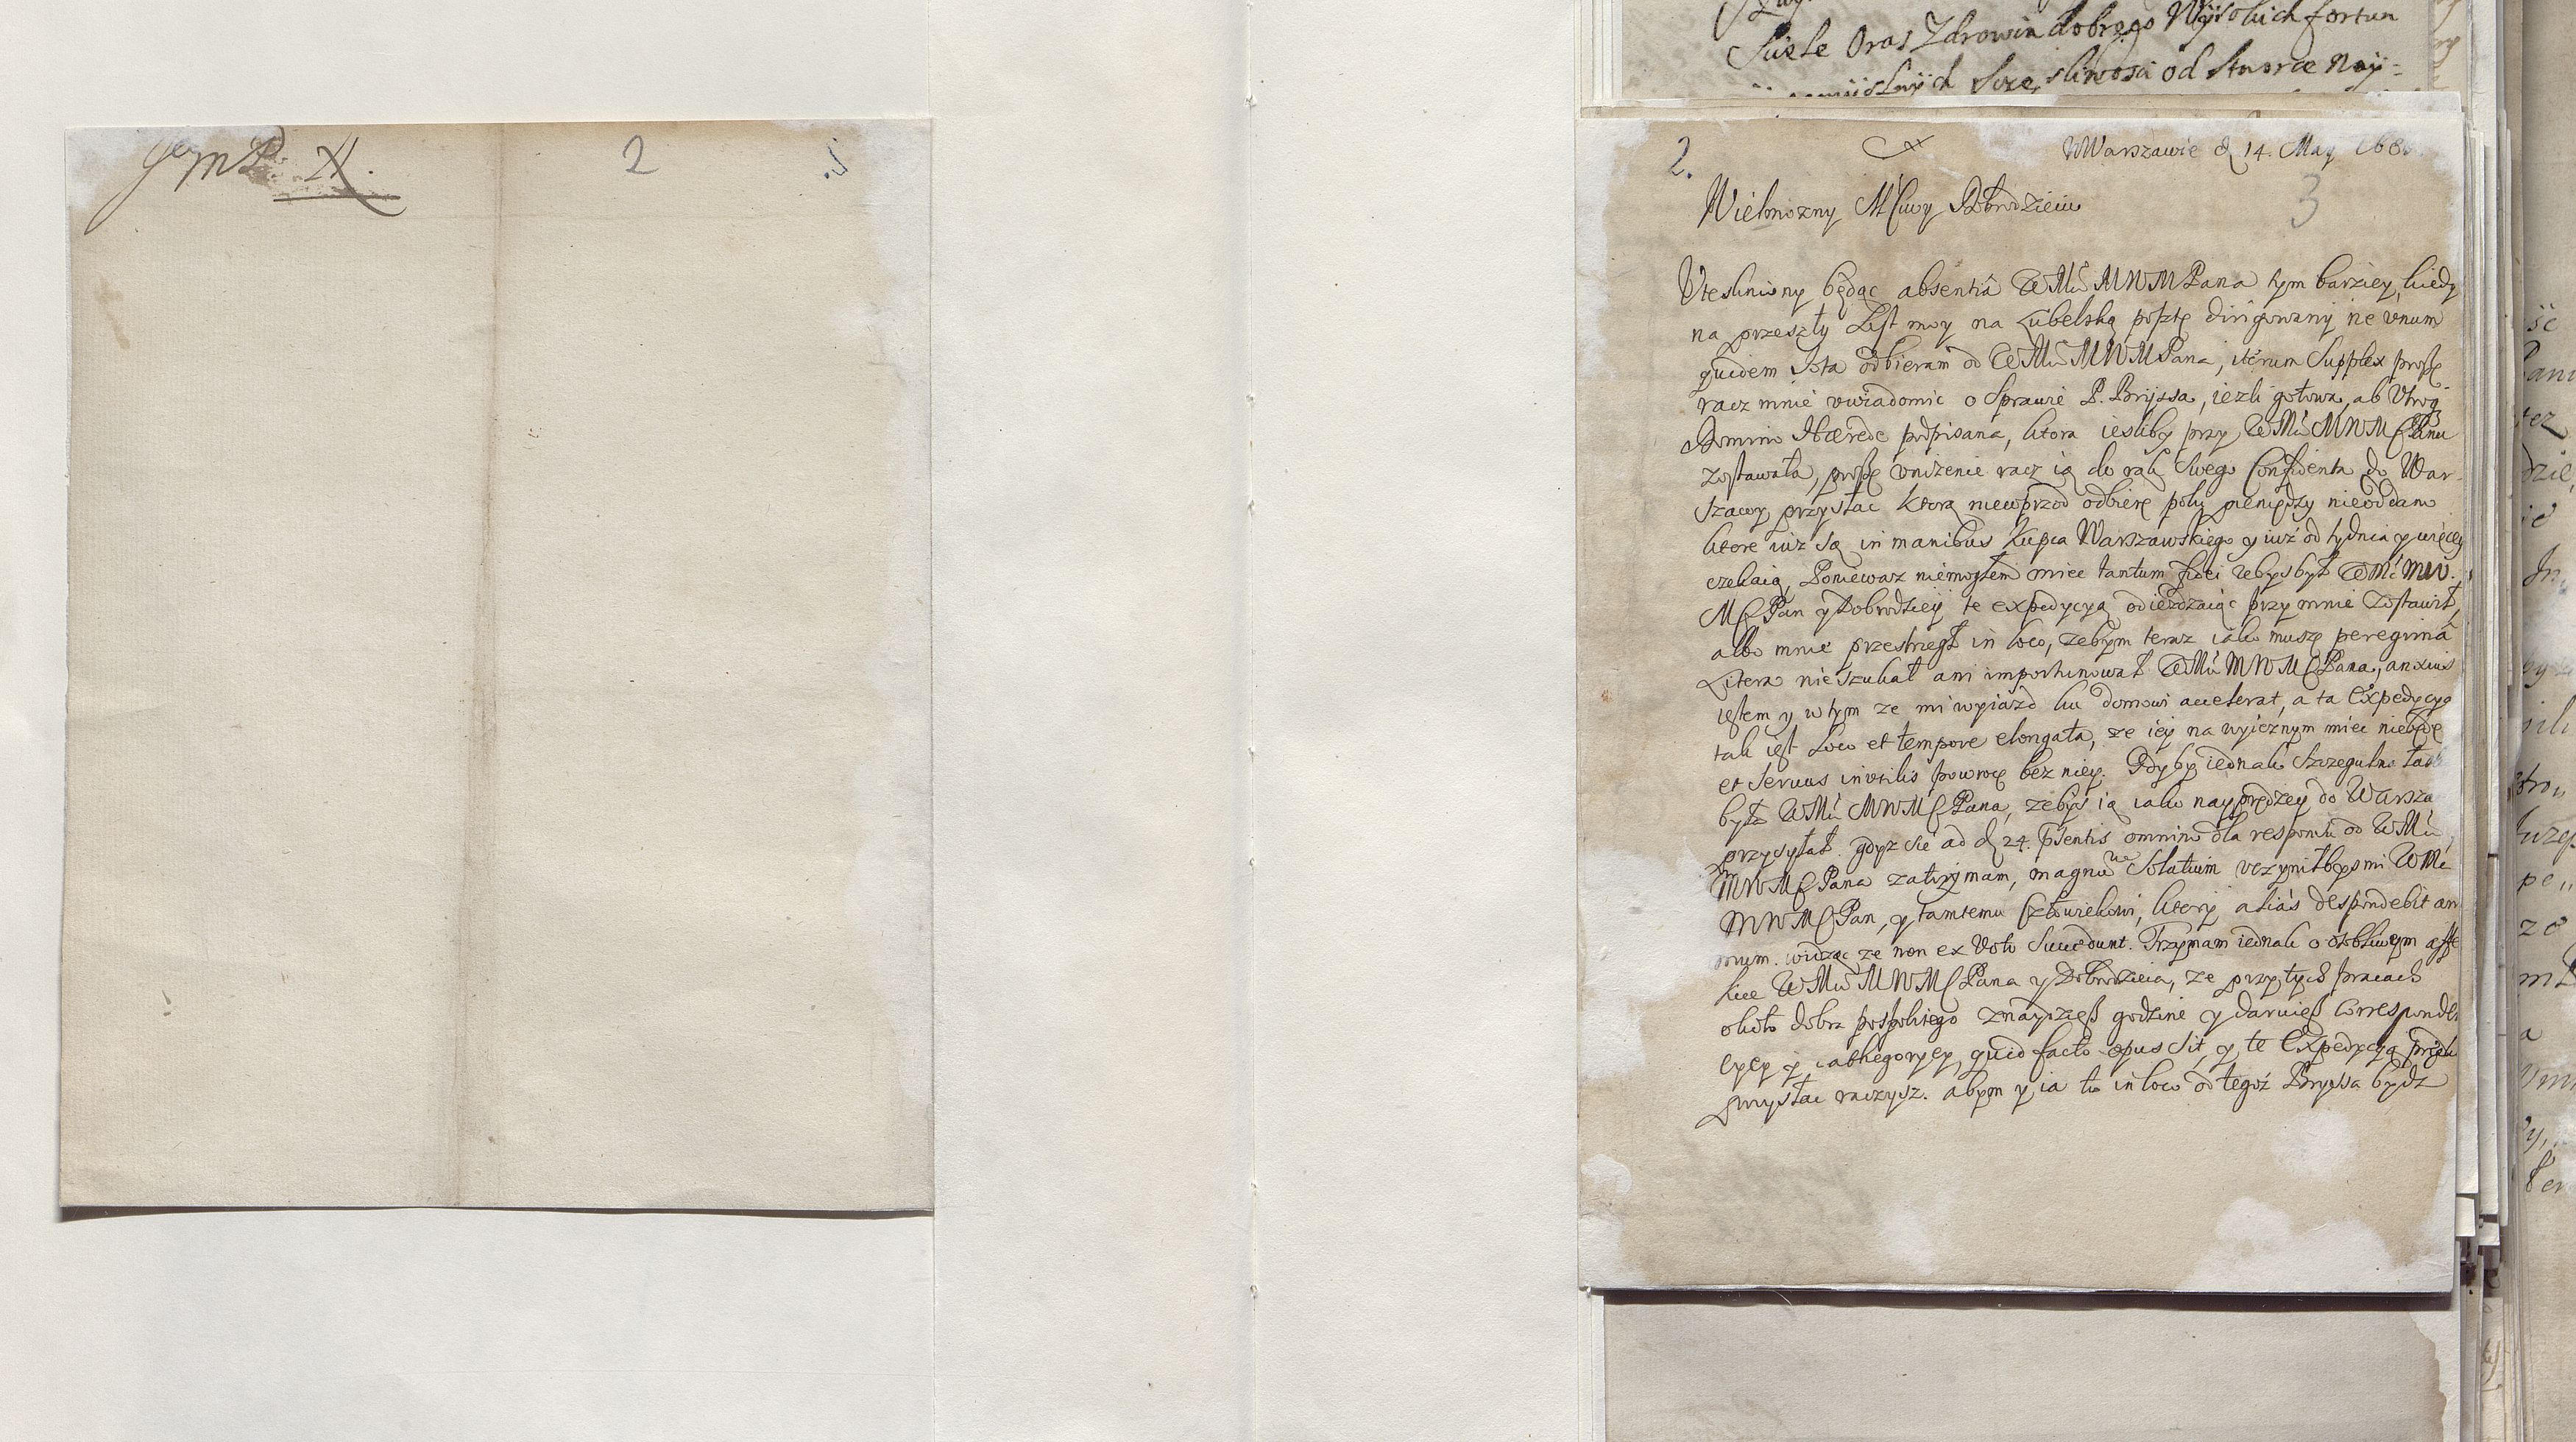 JeMP. X.
2
Suete Oraz Zdrowia dobrego Wysokich fortun
Szczęsliwości od Stworce Nay-
2.
WWarszawie d 14. May 168
3
Wielmozny MCiwy Dobrodzieiu
Vteskniony będąc absentiâ WMci MWMPana tym barziey, kiedy
na przeszły List moy na Lubelską posztę dirigowany ne unum
quidem Iota odbieram od WMci MWMPana, iterum Supplex proszę
racz mnie uwiadomic o Sprawie P. Bryssa, iezli gotowa, ab Utroq
Domino Hærede podpisana, ktora iesliby przy WMci MWMCPanu
zostawała, proszę unizenie racz ią do rąk Swego Confidenta do War-
szawy przysłac Ktorą niewprzod odbiorę poki pieniędzy nieoddam
ktore iuz są in manibus Kupca Warszawskiego y iuz od tydnia y więcey
czekaią, Poniewaz niemogłem miec tantum fidei zebys był WMć MW.
MCPan y Dobrodziey te expedycyą odiezdzaiąc przy mnie zostawił,
albo mnie przestrzegł in loco, zebym teraz iako muszę peregrina
Litera nieszukał ani importunował WMci MWMCPana, anxius
iestem y wtym ze mi wyiazd ku domowi accelerat, a ta Expedycya
tak iest Loco et tempore elongata, ze iey na wyieznym miec niebędę
et Servus inutilis powrocę bez niey. Gdyby iednak Szczegulna łas
była WMci MWMCPana, zebys ią iako nayprędzey do Warsza
przysyłał. gdyz sie ad d 24. psentis omnino dla responsu od WMci
MWMCPana zatrzymam, magnu Solatium uczyniłbys mi WMć
MWMCPan, y tamtemu Człowiekowi, ktory alias despondebit ani
mum. widząc ze non ex Voto Succedunt. Trzymam iednak o osobliwym affe
kcie WMci MWMCPana y Dobrodzieia, ze przy tych pracach
około dobra pospolitego znaydziesz godzine y daruiesz Corresponde
cyey y cathegoryey, quid facto opus Sit, y te Expedycyą prędko
przysłac raczysz. abym y ia tu in loco od tegoz Bryssa bydz